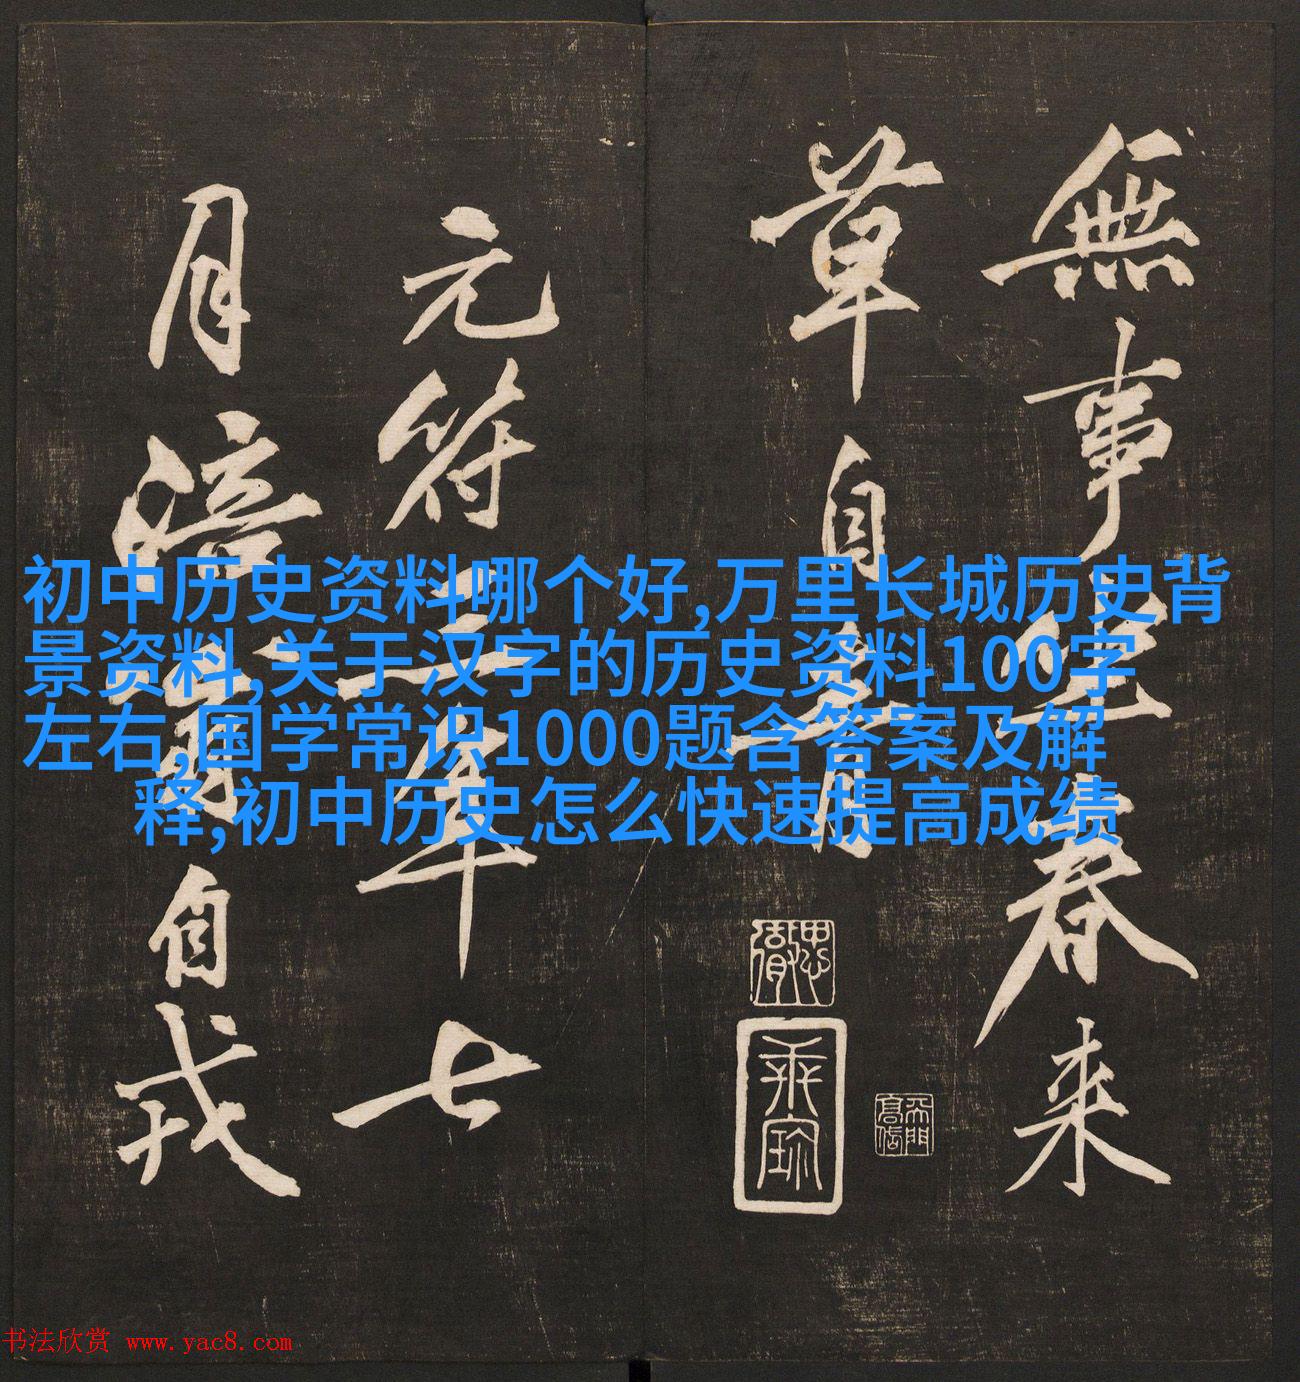 無事坐春来
草自青
元符三年七
月涪翁自戎
初中历史资料哪个好,万里长城历史背
景资料,关于汉字的历史资料100字
左右,国学常识1000题含答案及解
释,初中历史怎么快速提高成绩
书法欣赏 www.yac8.com